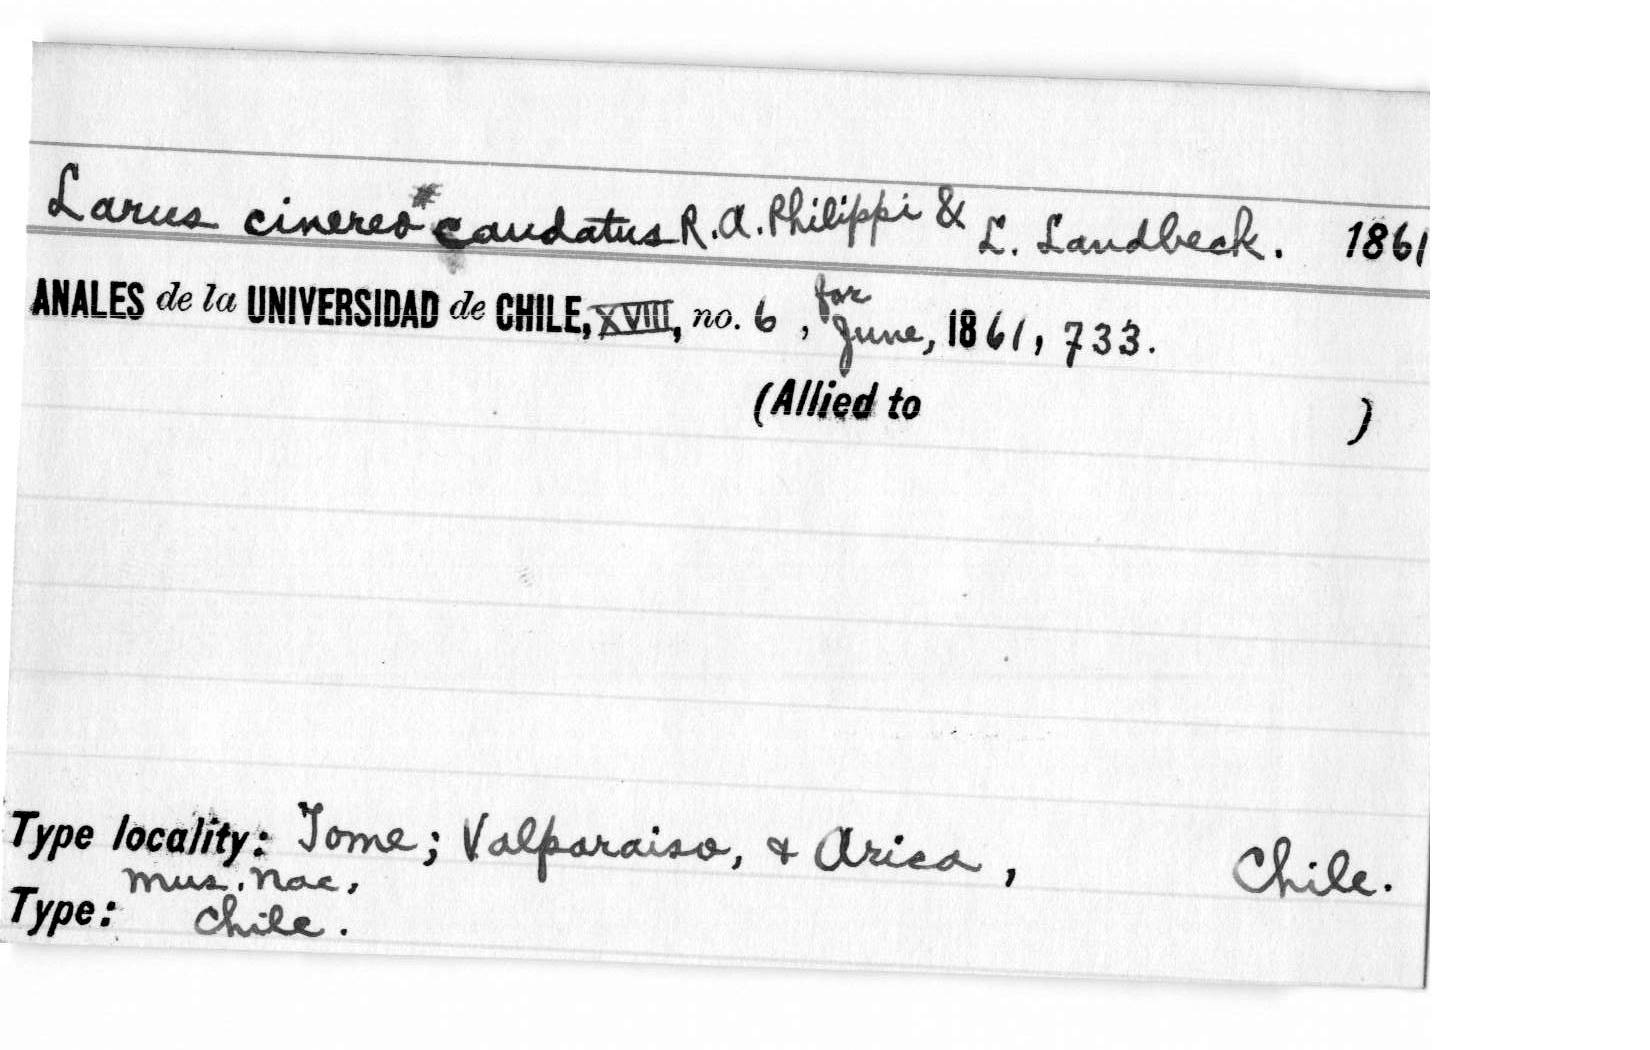 Larus cinereo caudatus R. A. Philippi & L. Landbeck. 1861
ANALES de la UNIVERSIDAD de CHILE, XVIII, no. 6, for June, 1861, 733.
(Allied to )
Type locality: Tome; Valparaiso, + Arica, Chile.
Mus. Nac.
Type: Chile.